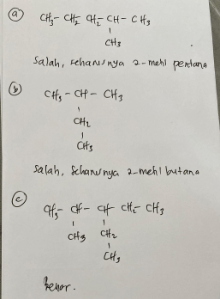 a
CH₃- CH₂ CH₂ - CH - CH₃
CH₃
Salah, seharusnya 2-mehl pentana
b
CH₃ - CH - CH₃
CH₂
CH₃
Salah, seharusnya 2-mehl butana
c
CH₃ - CH - CH CH₂ - CH₃
CH₃ CH₂
CH₃
Benar.